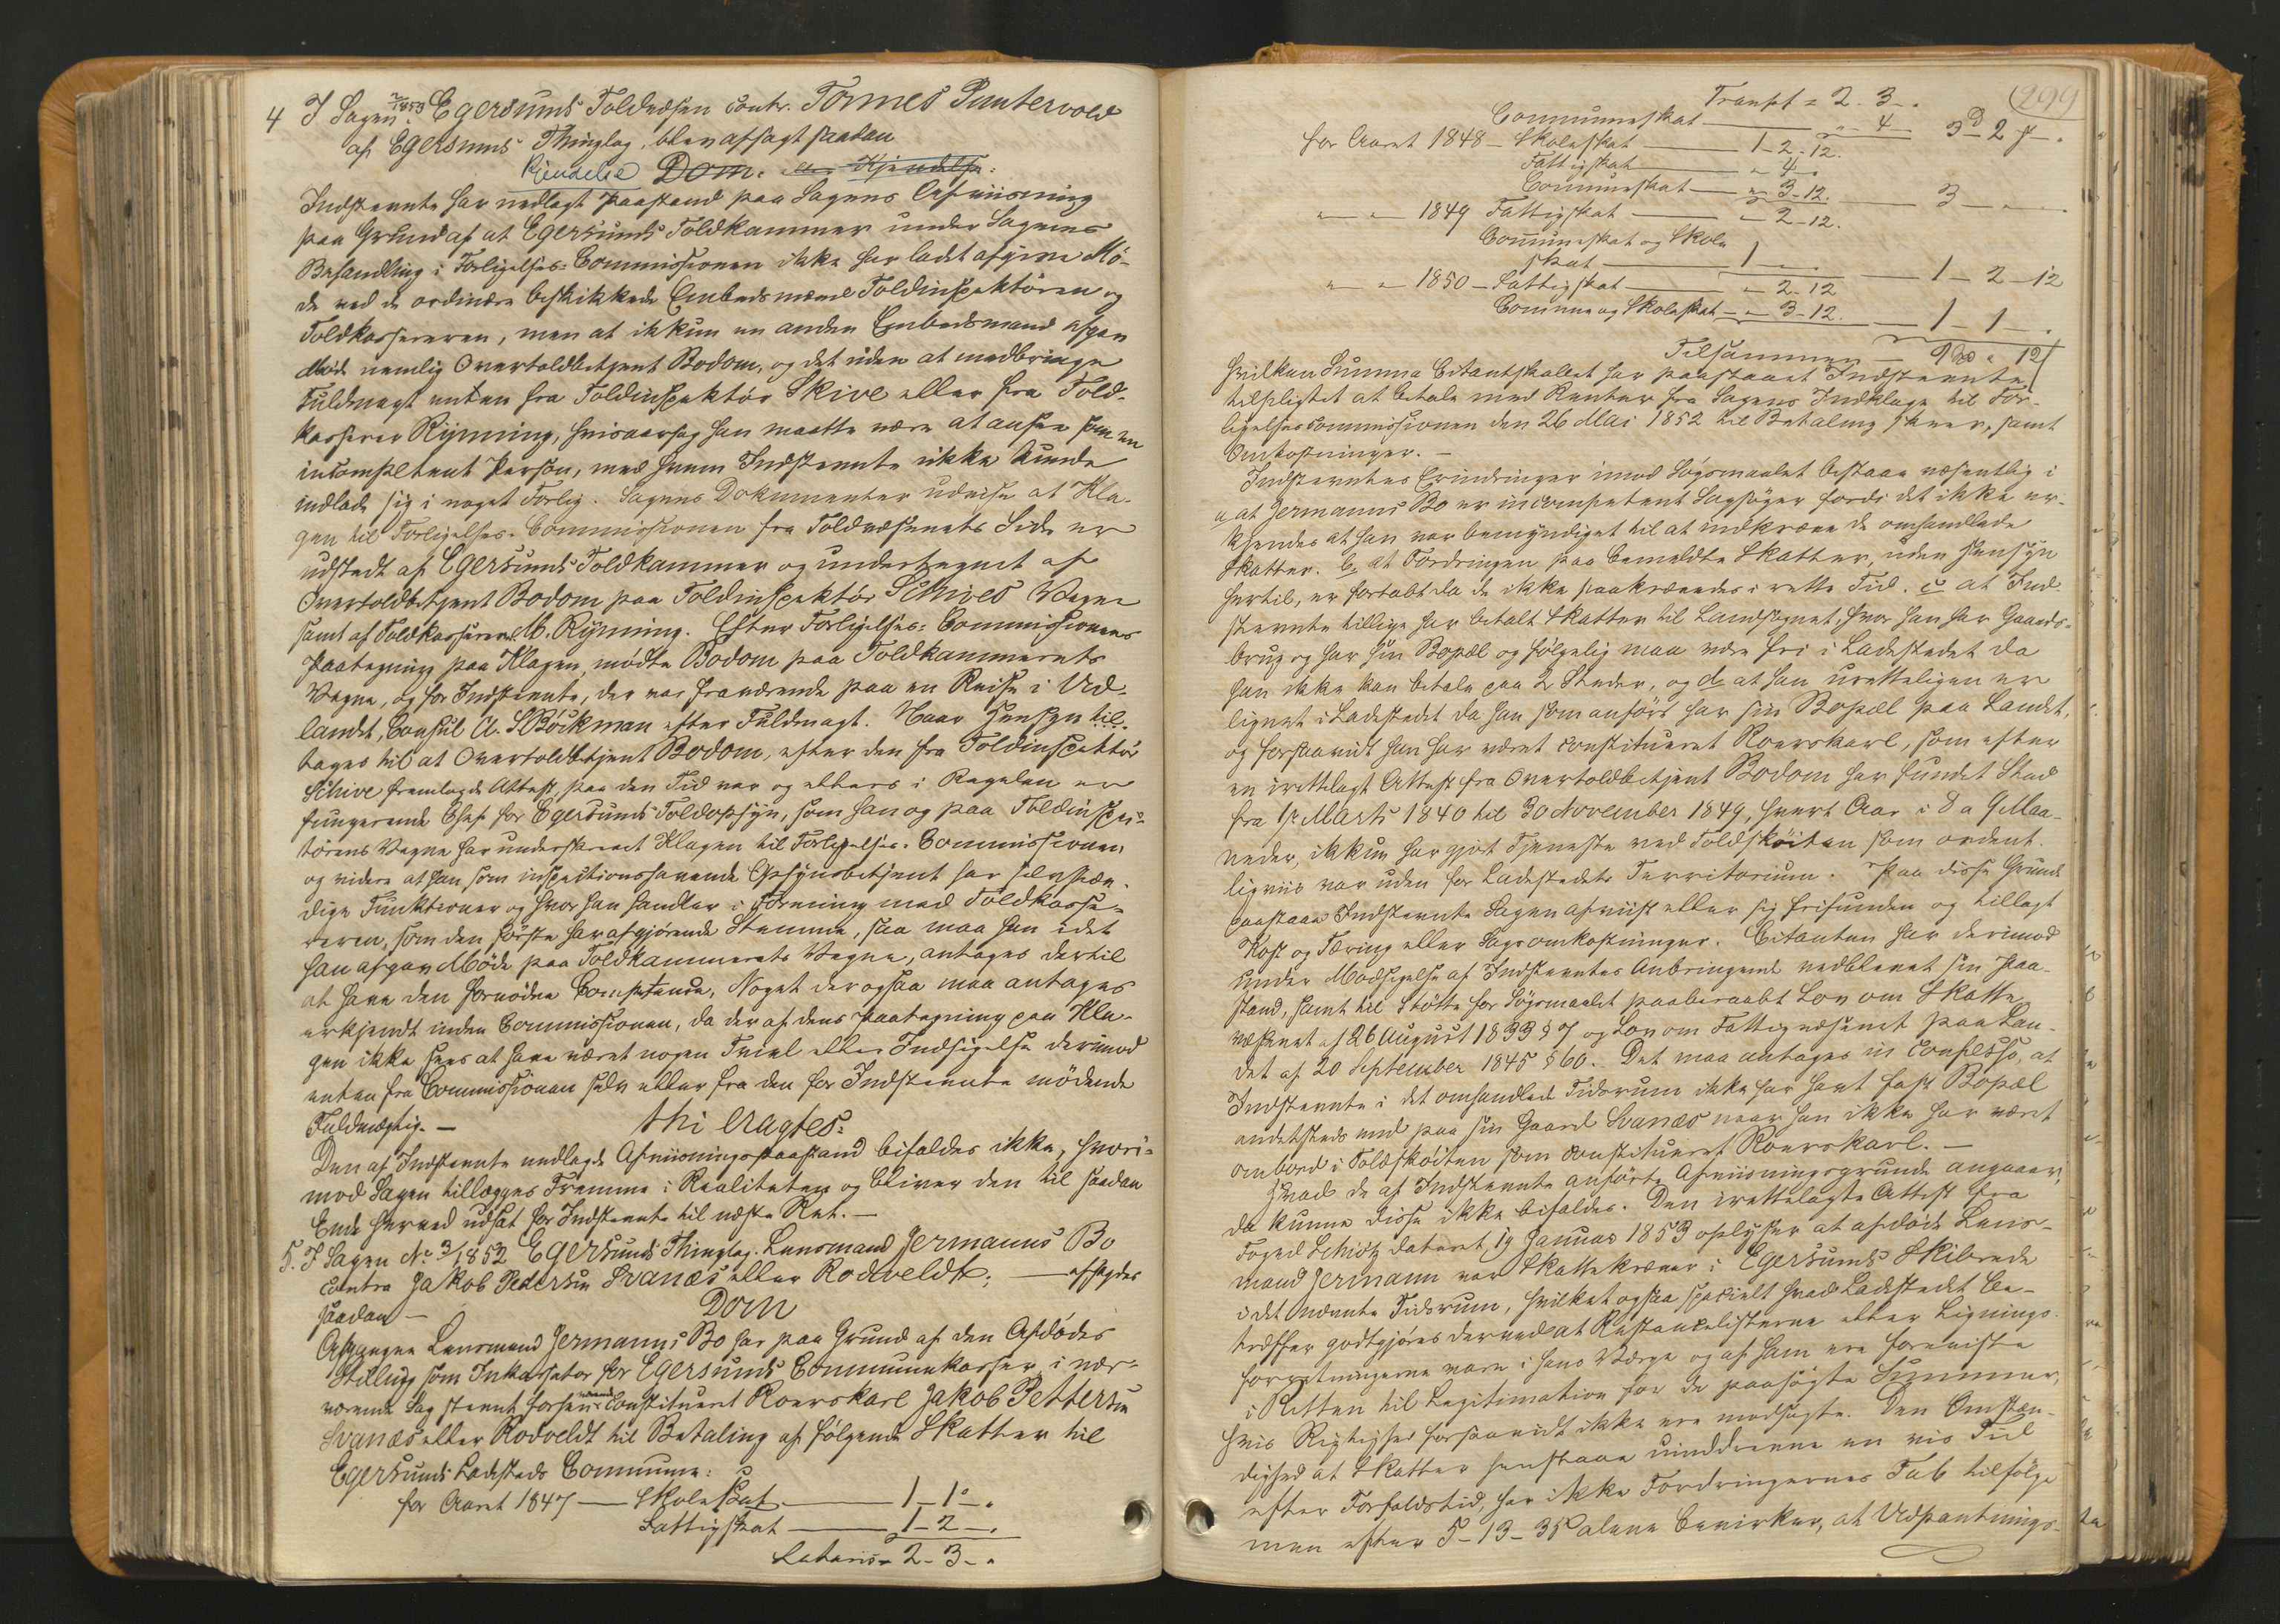 4 I Sagen 2/1853 Egersunds Toldvæsen contr. Tormes Puntervold
af Egersunds Thinglag, blev afsagt saadan
Kjendelse Dom. Kjendelse:
Indstevnte har nedlagt Paastand paa Sagens Afviisning
paa Grund af at Egersunds Toldkammer under Sagens
Behandling i Forligelses-Commissionen ikke har ladet afgive Mö-
de ved de ordinære beskikkede Embedsmænd Toldinspektören og
Toldkassereren, men at ikkun en anden Embedsmand afgav
Möde nemlig Overtoldbetjent Bodom, og det uden at medbringe
Fuldmagt enten fra Toldinspektör Skive eller fra Told-
kasserer Rynning, hvisaarsag han maatte være at ansee som en
incompetent Person, med hvem Indstevnte ikke kunde
indlade sig i noget Forlig. Sagens Dokumenter udvise at Kla-
gen til Forligelses-Commissionen fra Toldvæsenets Side er
udstedt af Egersunds Toldkammer og undertegnet af
Overtoldbetjent Bodom paa Toldinspektör Schives Vegne
samt af Toldkasserer M. Rynning. Efter Forligelses-Commissionens
Paategning paa Klagen, mödte Bodom paa Toldkammerets
Vegne, og for Indstevnte, der var fraværende paa en Reise i Ud-
landet, Consul A. S. Böckman efter Fuldmagt. Naar Hensyn til-
tages til at Overtoldbetjent Bodom, efter den fra Toldinspektör
Schive fremlagde Attest, paa den Tid var og ellers i Regelen er
fungerende Chef for Egersunds Toldopsyn, som han og paa Toldinspek-
törens Vegne har underskrevet Klagen til Forligelses-Commissionen,
og videre at han som inspectionshavende Opsynsbetjent har selvstæn-
dige Funktioner og hvor han handler i Forening med Toldkasse-
reren, som den förste har afgjörende Stemme, saa maa han idet
han afgav Möde paa Toldkammerets Vegne, antages dertil
at have den fornödne Competence, Noget der ogsaa maa antages
erkjendt inden Commissionen, da der af dens Paategning paa Kla-
gen ikke sees at have været nogen Tvivl eller Indsigelse derimod
enten fra Commissionen selv eller fra den for Indstevnte mödende
Fuldmægtig. — thi eragtes:
Den af Indstevnte nedlagde Afviisningspaastand bifaldes ikke, hvori-
mod Sagen tillægges Fremme i Realiteten og bliver den til saadan
Ende herved udsat for Indstevnte til næste Ret. —
5. I Sagen No 3/1852 Egersunds Thinglag. Lensmand Jermanns Bo
contra Jakob Pedersen Svanæs eller Rodveldt; — afsagdes
saadan — Dom
Afgangne Lensmand Jermanns Bo har paa Grund af den Afdödes
Stilling som Inkassator for Egersunds Communekasser, i nær-
værende Sag stevnt forhenværende constitueret Roerskarl Jakob Pettersen
Svanæs eller Rodveldt til Betaling af fölgende Skatter til
Egersunds Ladesteds Commune:
for Aaret 1847 — Skoleskat — 1 — 1 — .
Fattigskat — 1 — 2 — .
Lateris = 2 - 3 - .
299
Transpt = 2 - 3 - .
Communeskat — " - 4 — 3 d 2 s - .
for Aaret 1848 — Skoleskat — 1 - 2 - 12.
Fattigskat — " - 4 -
Communeskat — " - 3 - 12. — 3 — " —
" — " — 1849 Fattigskat — " - 2 - 12.
Communeskat og Skole
skat — 1 — 1 - 2 - 12
" — " — 1850 — Fattigskat — " - 2 - 12
Commune og Skoleskat — " - 3 - 12. — 1 - 1 - .
Tilsammen — 9 " 12
hvilken Summa Citantskabet har paastaaet Indstevnte
tilpligtet at betale med Renter fra Sagens Indklage til For-
ligelsescommissionen den 26 Mai 1852 til Betaling skeer, samt
Omkostninger. —
Indstevntes Erindringer imod Sögsmaalet bestaae væsentlig i
a, at Jermanns Bo er incompetent Sagsöger fordi det ikke er-
kjendes at han var bemyndiget til at indkræve de omhandlede
Skatter. b, at Fordringen paa bemeldte Skatter, uden Hensyn
hertil, er fortabt da de ikke paakrævedes i rette Tid. c at Ind-
stevnte tillige har betalt Skatter til Landsognet, hvor han har Gaards-
brug og har sin Bopæl og fölgelig maa være fri i Ladestedet da
han ikke kan betale paa 2 Steder, og d, at han urettelig en er
lignet i Ladestedet da han som anfört har sin Bopæl paa Landet,
og forsaavidt han har været constitueret Roerskarl, som efter
en irettelagt Attest fra Overtoldbetjent Bodom har fundet Sted
fra 1st Marts 1840 til 30 November 1849, hvert Aar i 8 a 9 Maa-
neder, ikkun har gjort Tjeneste ved Toldsköiten som ordent-
ligviis var uden for Ladestedets Territorium. Paa disse Grunde
paastaaer Indstevnte Sagen afviist eller sig frifunden og tillagt
Kost og Tæring eller Sagsomkostninger. Citanten har derimod
under Modsigelse af Indstevntes Anbringende vedblevet sin Paa-
stand, samt til Stötte for Sögsmaalet paaberaabt Lov om Skatte-
væsenet af 26 August 1833 § 7 og Lov om Fattigvæsenet paa Lan-
det af 20 September 1845 § 60. Det maa antages in confesso, at
Indstevnte i det omhandlede Tidsrum ikke har havt fast Bopæl
andetsteds end paa sin Gaard Svanæs naar han ikke har været
ombord i Toldsköiten som constitueret Roerskarl. —
Hvad de af Indstevnte anförte Afviisningsgrunde angaaer,
da kunne disse ikke bifaldes. Den irettelagte Attest fra
Foged Schiötz dateret 19 Januar 1853 oplyser at afdöde Lens-
mand Jermann var Skattekræver i Egersunds Skibrede
i det nævnte Tidsrum, hvilket ogsaa specielt hvad Ladestedet be-
træffer godtgjöres derved at Restancelisterne eller Lignings-
forretningerne vare i hans Værge og af ham ere foreviste
i Retten til Legitimation for de paasögte Summer,
hvis Rigtighed forsaavidt ikke ere modsagte. Den Omstæn-
dighed at Skatter henstaae uinddrevne en vis Tid
efter Forfaldstid, har ikke Fordringernes Tab tilfölge
men efter 5-13-35 alene bevirker, at Udpantnings-